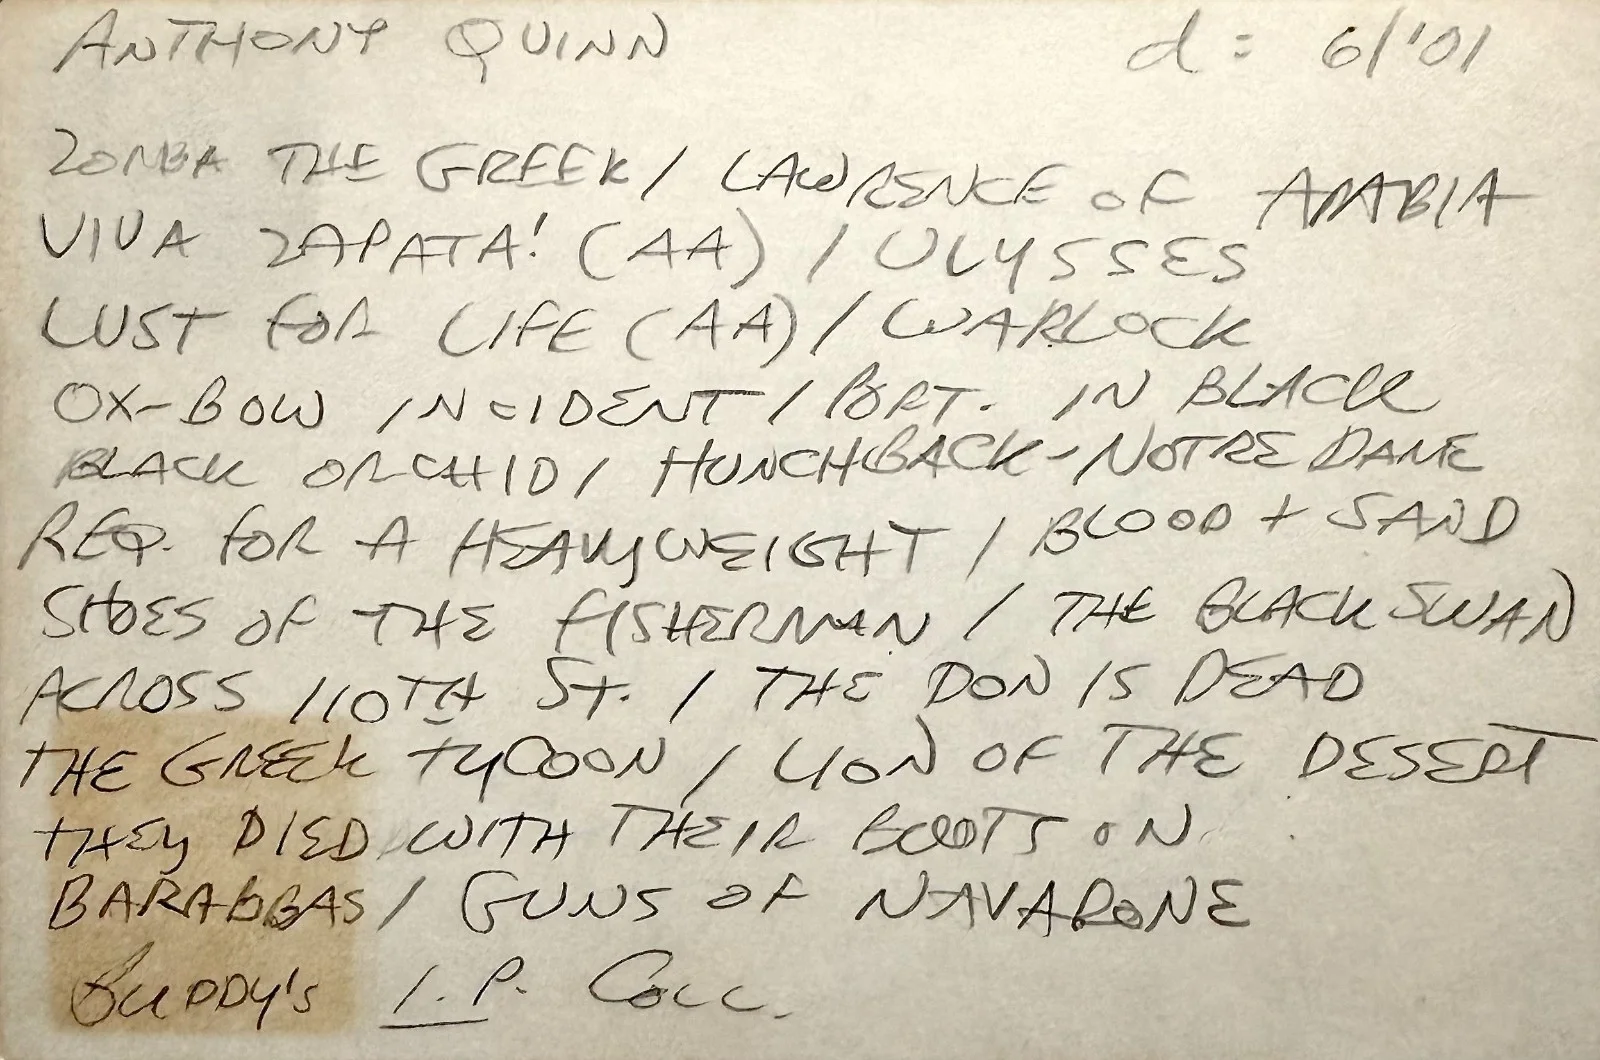 ANTHONY QUINN d: 6/'01
ZORBA THE GREEK / LAWRENCE OF ARABIA
VIVA ZAPATA! (AA) / ULYSSES
LUST FOR LIFE (AA) / WARLOCK
OX-BOW INCIDENT / PORT. IN BLACK
BLACK ORCHID / HUNCHBACK-NOTRE DAME
REQ. FOR A HEAVYWEIGHT / BLOOD + SAND
SHOES OF THE FISHERMAN / THE BLACK SWAN
ACROSS 110TH ST. / THE DON IS DEAD
THE GREEK TYCOON / LION OF THE DESERT
THEY DIED WITH THEIR BOOTS ON
BARABBAS / GUNS OF NAVARONE
BUDDY'S I.P. COLL.